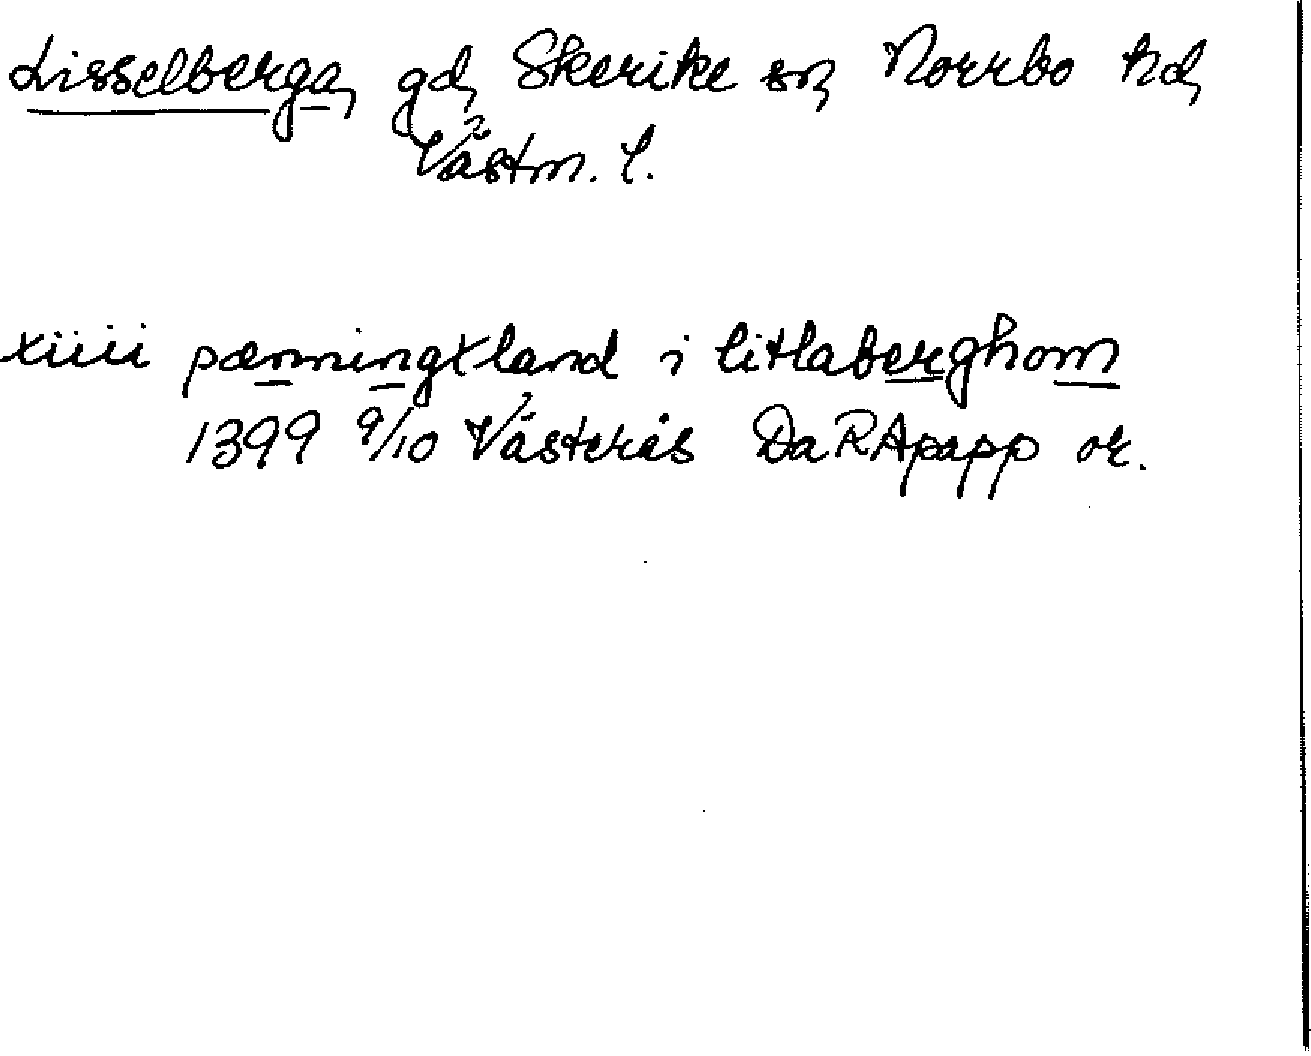 Lisselberga, gd, Skerike sn, Norrbo hd,
Västm. l.
xiiii pænningxland i litlaberghom
1399 9/10 Västerås DaRApapp or.